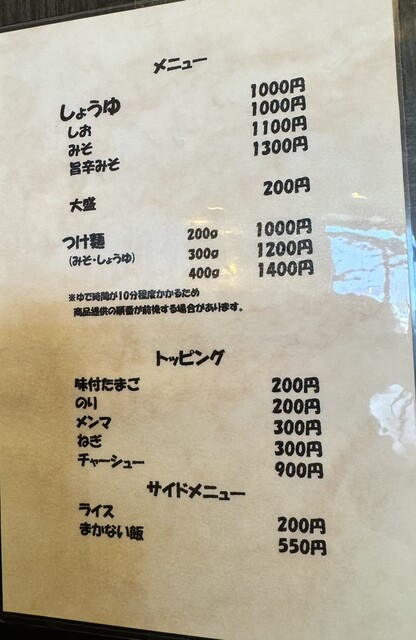 メニュー
しょうゆ 1000円
しお 1000円
みそ 1100円
旨辛みそ 1300円
大盛 200円
つけ麺 200g 1000円
(みそ・しょうゆ) 300g 1200円
400g 1400円
※ゆで時間が10分程度かかるため
商品提供の順番が前後する場合があります。
トッピング
味付たまご 200円
のり 200円
メンマ 300円
ねぎ 300円
チャーシュー 900円
サイドメニュー
ライス 200円
まかない飯 550円